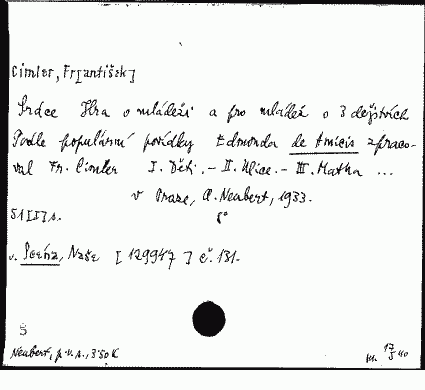 Cimler, Fr[antišek]
Srdce Hra o mládeži a pro mládež o 3 dějstvích
Podle populární povídky Edmonda de Amicis zpraco-
val Fr. Cimler I. Děti. – II. Ulice. – III. Matka ...
v Praze, A. Neubert, 1933.
51 [I] s. 8°
v. Scéna, Naše [129947] č. 131.
S
Neubert, p. v. A., 3·50 K
m. 17/5 40